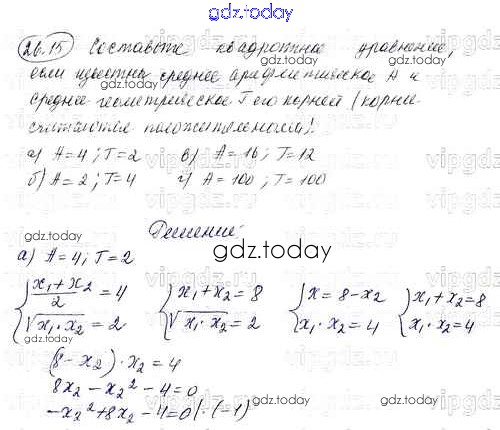 gdz.today
26.15 Составьте квадратное уравнение,
если известны среднее арифметическое А и
среднее геометрическое Г его корней (корни
считаются положительными).
а) A=4; Г=2 в) A=16; Г=12
б) A=2; Г=4 г) A=100; Г=100
gdz.today
Решение:
gdz.today
а) A=4; Г=2
{ x₁+x₂/2 = 4 { x₁+x₂ = 8 { x = 8-x₂ { x₁+x₂=8
√x₁·x₂ = 2 √x₁·x₂ = 2 x₁·x₂ = 4 x₁·x₂=4
(8-x₂)·x₂ = 4
8x₂-x₂²-4=0
-x₂²+8x₂-4=0 |·(-1)
gdz.today